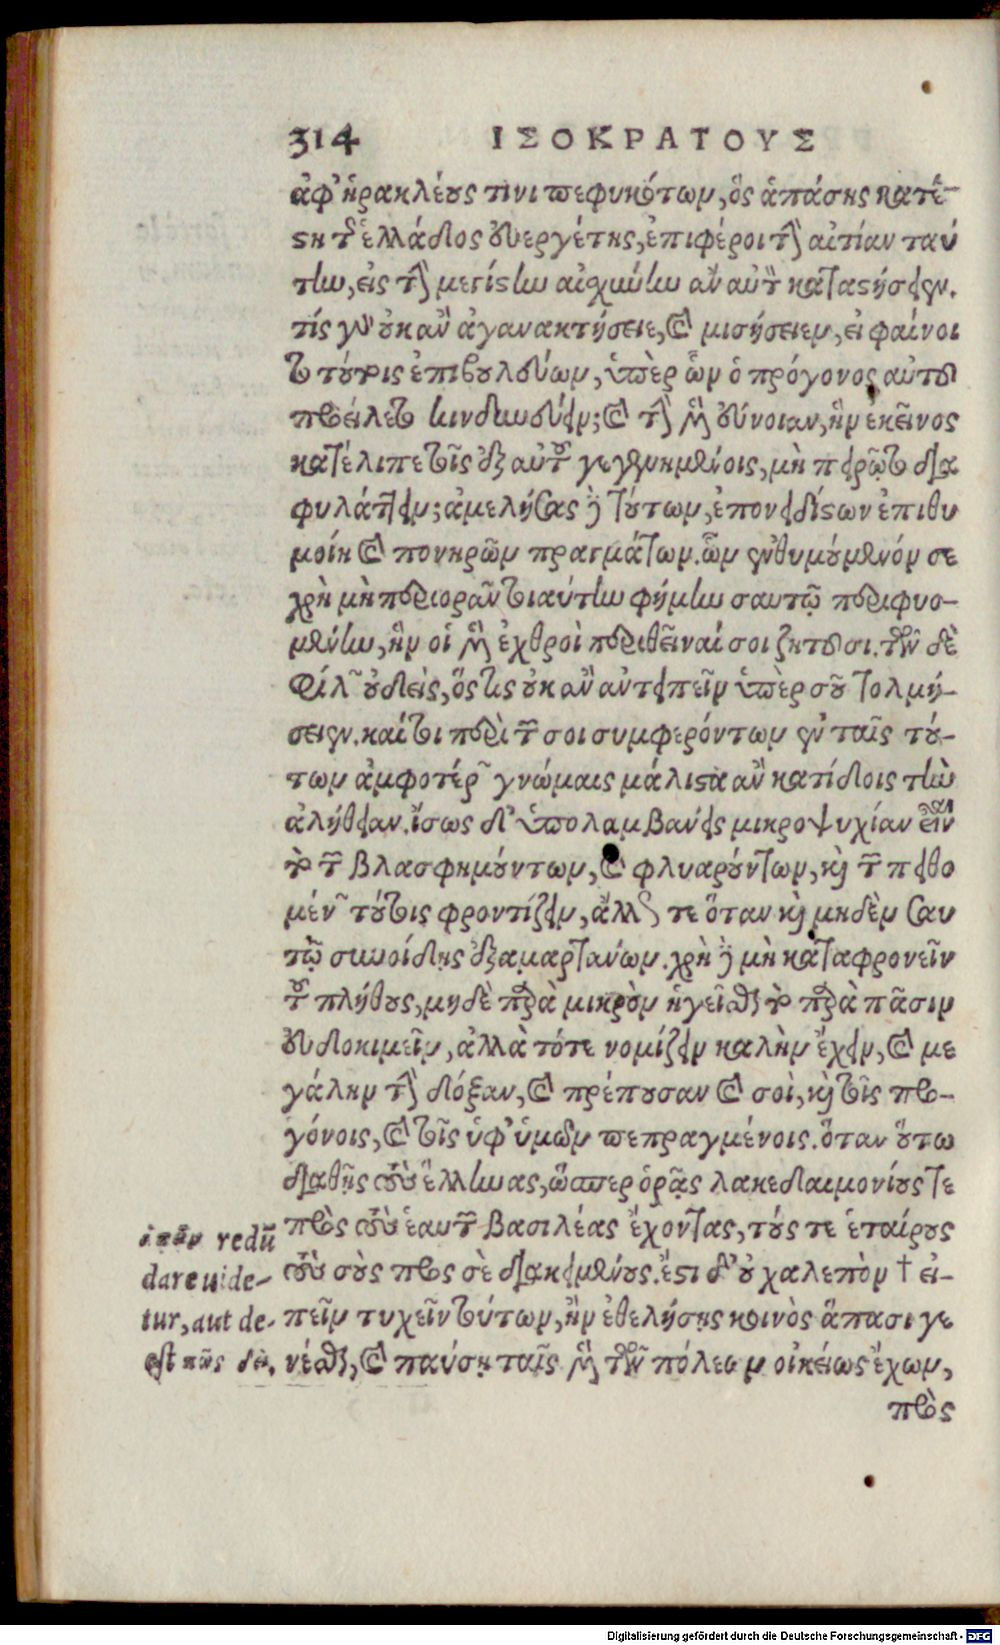 314 ΙΣΟΚΡΑΤΟΥΣ
ἀφ' ἡρακλέους τινι πεφυκότων, ὃς ἁπάσης κατέ-
στη τῆς ἑλλάδος εὐεργέτης, ἐπιφέροι τὴν αἰτίαν ταύ
την, εἰς τὴν μεγίστην αἰσχύνην ἂν αὐτὸν καταστήσειεν.
τίς γὰρ οὐκ ἂν ἀγανακτήσειε, καὶ μισήσειεν, εἰ φαίνοι
το τούτοις ἐπιβουλεύων, ὑπὲρ ὧν ὁ πρόγονος αὐτοῦ
προείλετο κινδυνεύειν; καὶ τὴν μὲν εὔνοιαν, ἣν ἐκεῖνος
κατέλιπε τοῖς ἐξ αὐτοῦ γεγενημένοις, μὴ πειρῷτο δια
φυλάττειν; ἀμελήσας δὲ τούτων, ἐπονειδίστων ἐπιθυ
μοίη καὶ πονηρῶν πραγμάτων. ὧν ἐνθυμούμενόν σε
χρὴ μὴ περιορᾶν τοιαύτην φήμην σαυτῷ περιφυο-
μένην, ἣν οἱ μὲν ἐχθροὶ περιθεῖναί σοι ζητοῦσι. τῶν δὲ
φίλων οὐδεὶς, ὅστις οὐκ ἂν ἀντειπεῖν ὑπὲρ σοῦ τολμή-
σειεν. καίτοι περὶ τῶν σοι συμφερόντων ἐν ταῖς τού-
των ἀμφοτέρων γνώμαις μάλιστα ἂν κατίδοις τὴν
ἀλήθειαν. ἴσως δ' ὑπολαμβάνεις μικροψυχίαν εἶναι
τὸ τῶν βλασφημούντων, καὶ φλυαρούντων, καὶ τῶν πειθο
μένων τούτοις φροντίζειν, ἄλλως τε ὅταν καὶ μηδὲν σαυ
τῷ συνοίδῃς ἐξαμαρτάνων. χρὴ δὲ μὴ καταφρονεῖν
τοῦ πλήθους, μηδὲ παρὰ μικρὸν ἡγεῖσθαι τὸ παρὰ πᾶσιν
εὐδοκιμεῖν, ἀλλὰ τότε νομίζειν καλὴν ἔχειν, καὶ με
γάλην τὴν δόξαν, καὶ πρέπουσαν καὶ σοὶ, καὶ τοῖς προ-
γόνοις, καὶ τοῖς ὑφ' ὑμῶν πεπραγμένοις. ὅταν οὕτω
διαθῇς τοὺς ἕλληνας, ὥσπερ ὁρᾷς λακεδαιμονίους τε
πρὸς τοὺς ἑαυτῶν βασιλέας ἔχοντας, τούς τε ἑταίρους
τοὺς σοὺς πρὸς σὲ διακειμένους. ἔστι δ' οὐ χαλεπὸν † εἰ-
πεῖν τυχεῖν τούτων, ἢν ἐθελήσῃς κοινὸς ἅπασι γε
νέσθαι, καὶ παύσῃ ταῖς μὲν τῶν πόλεων οἰκείως ἔχων,
πρὸς
εἰπεῖν redū
dare uide-
tur, aut de-
est πῶς δεῖ.
Digitalisierung gefördert durch die Deutsche Forschungsgemeinschaft - DFG